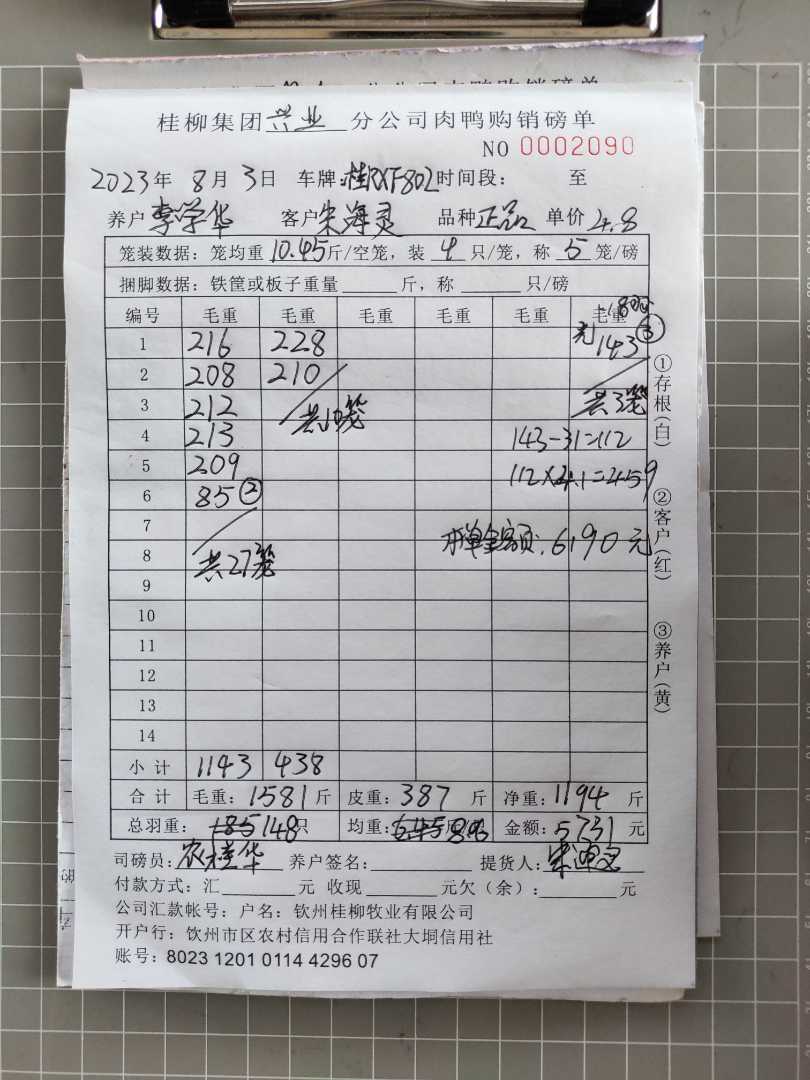 桂柳集团兴业分公司肉鸭购销磅单
NO 0002090
2023年 8月 3日 车牌:桂RXF802 时间段: 至
养户 李学华 客户 朱海灵 品种 正品 单价 4.8
笼装数据:笼均重 10.45斤/空笼,装 4 只/笼,称 5 笼/磅
捆脚数据:铁筐或板子重量 斤,称 只/磅
编号 毛重 毛重 毛重 毛重 毛重 毛重
1 216 228 143 ③
2 208 210
3 212 共10笼 共3笼
4 213 143-31=112
5 209 112×4.1=459
6 85 ②
7 开单金额:6190元
8 共27笼
9
10
11
12
13
14
小计 1143 438
合计 毛重:1581斤 皮重:387 斤 净重:1194 斤
总羽重: 185 148只 均重: 金额:5731 元
司磅员:农桂华 养户签名: 提货人:
付款方式:汇 元 收现 元欠(余): 元
公司汇款帐号:户名:钦州桂柳牧业有限公司
开户行:饮州市区农村信用合作联社大垌信用社
账号:8023 1201 0114 4296 07
①存根(白)
②客户(红)
③养户(黄)